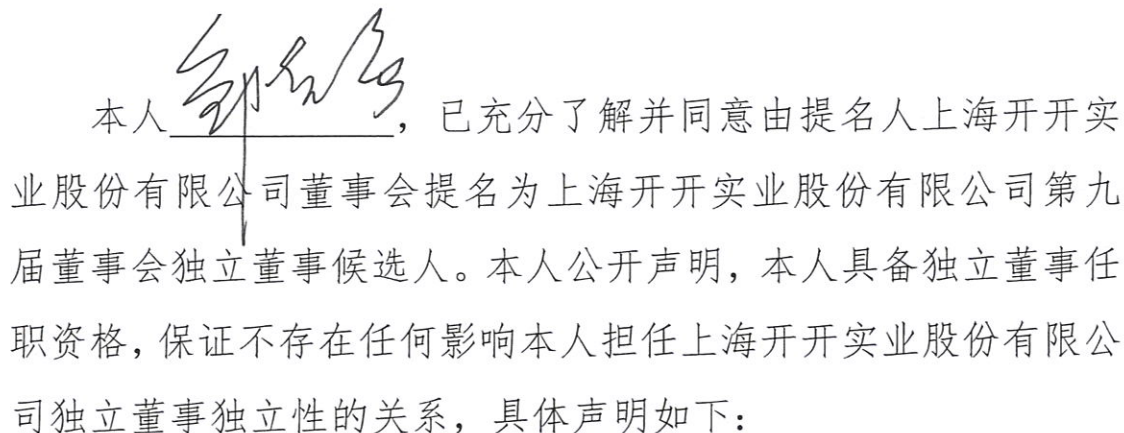 本人，已充分了解并同意由提名人上海开开实
业股份有限公司董事会提名为上海开开实业股份有限公司第九
届董事会独立董事候选人。本人公开声明，本人具备独立董事任
职资格，保证不存在任何影响本人担任上海开开实业股份有限公
司独立董事独立性的关系，具体声明如下：